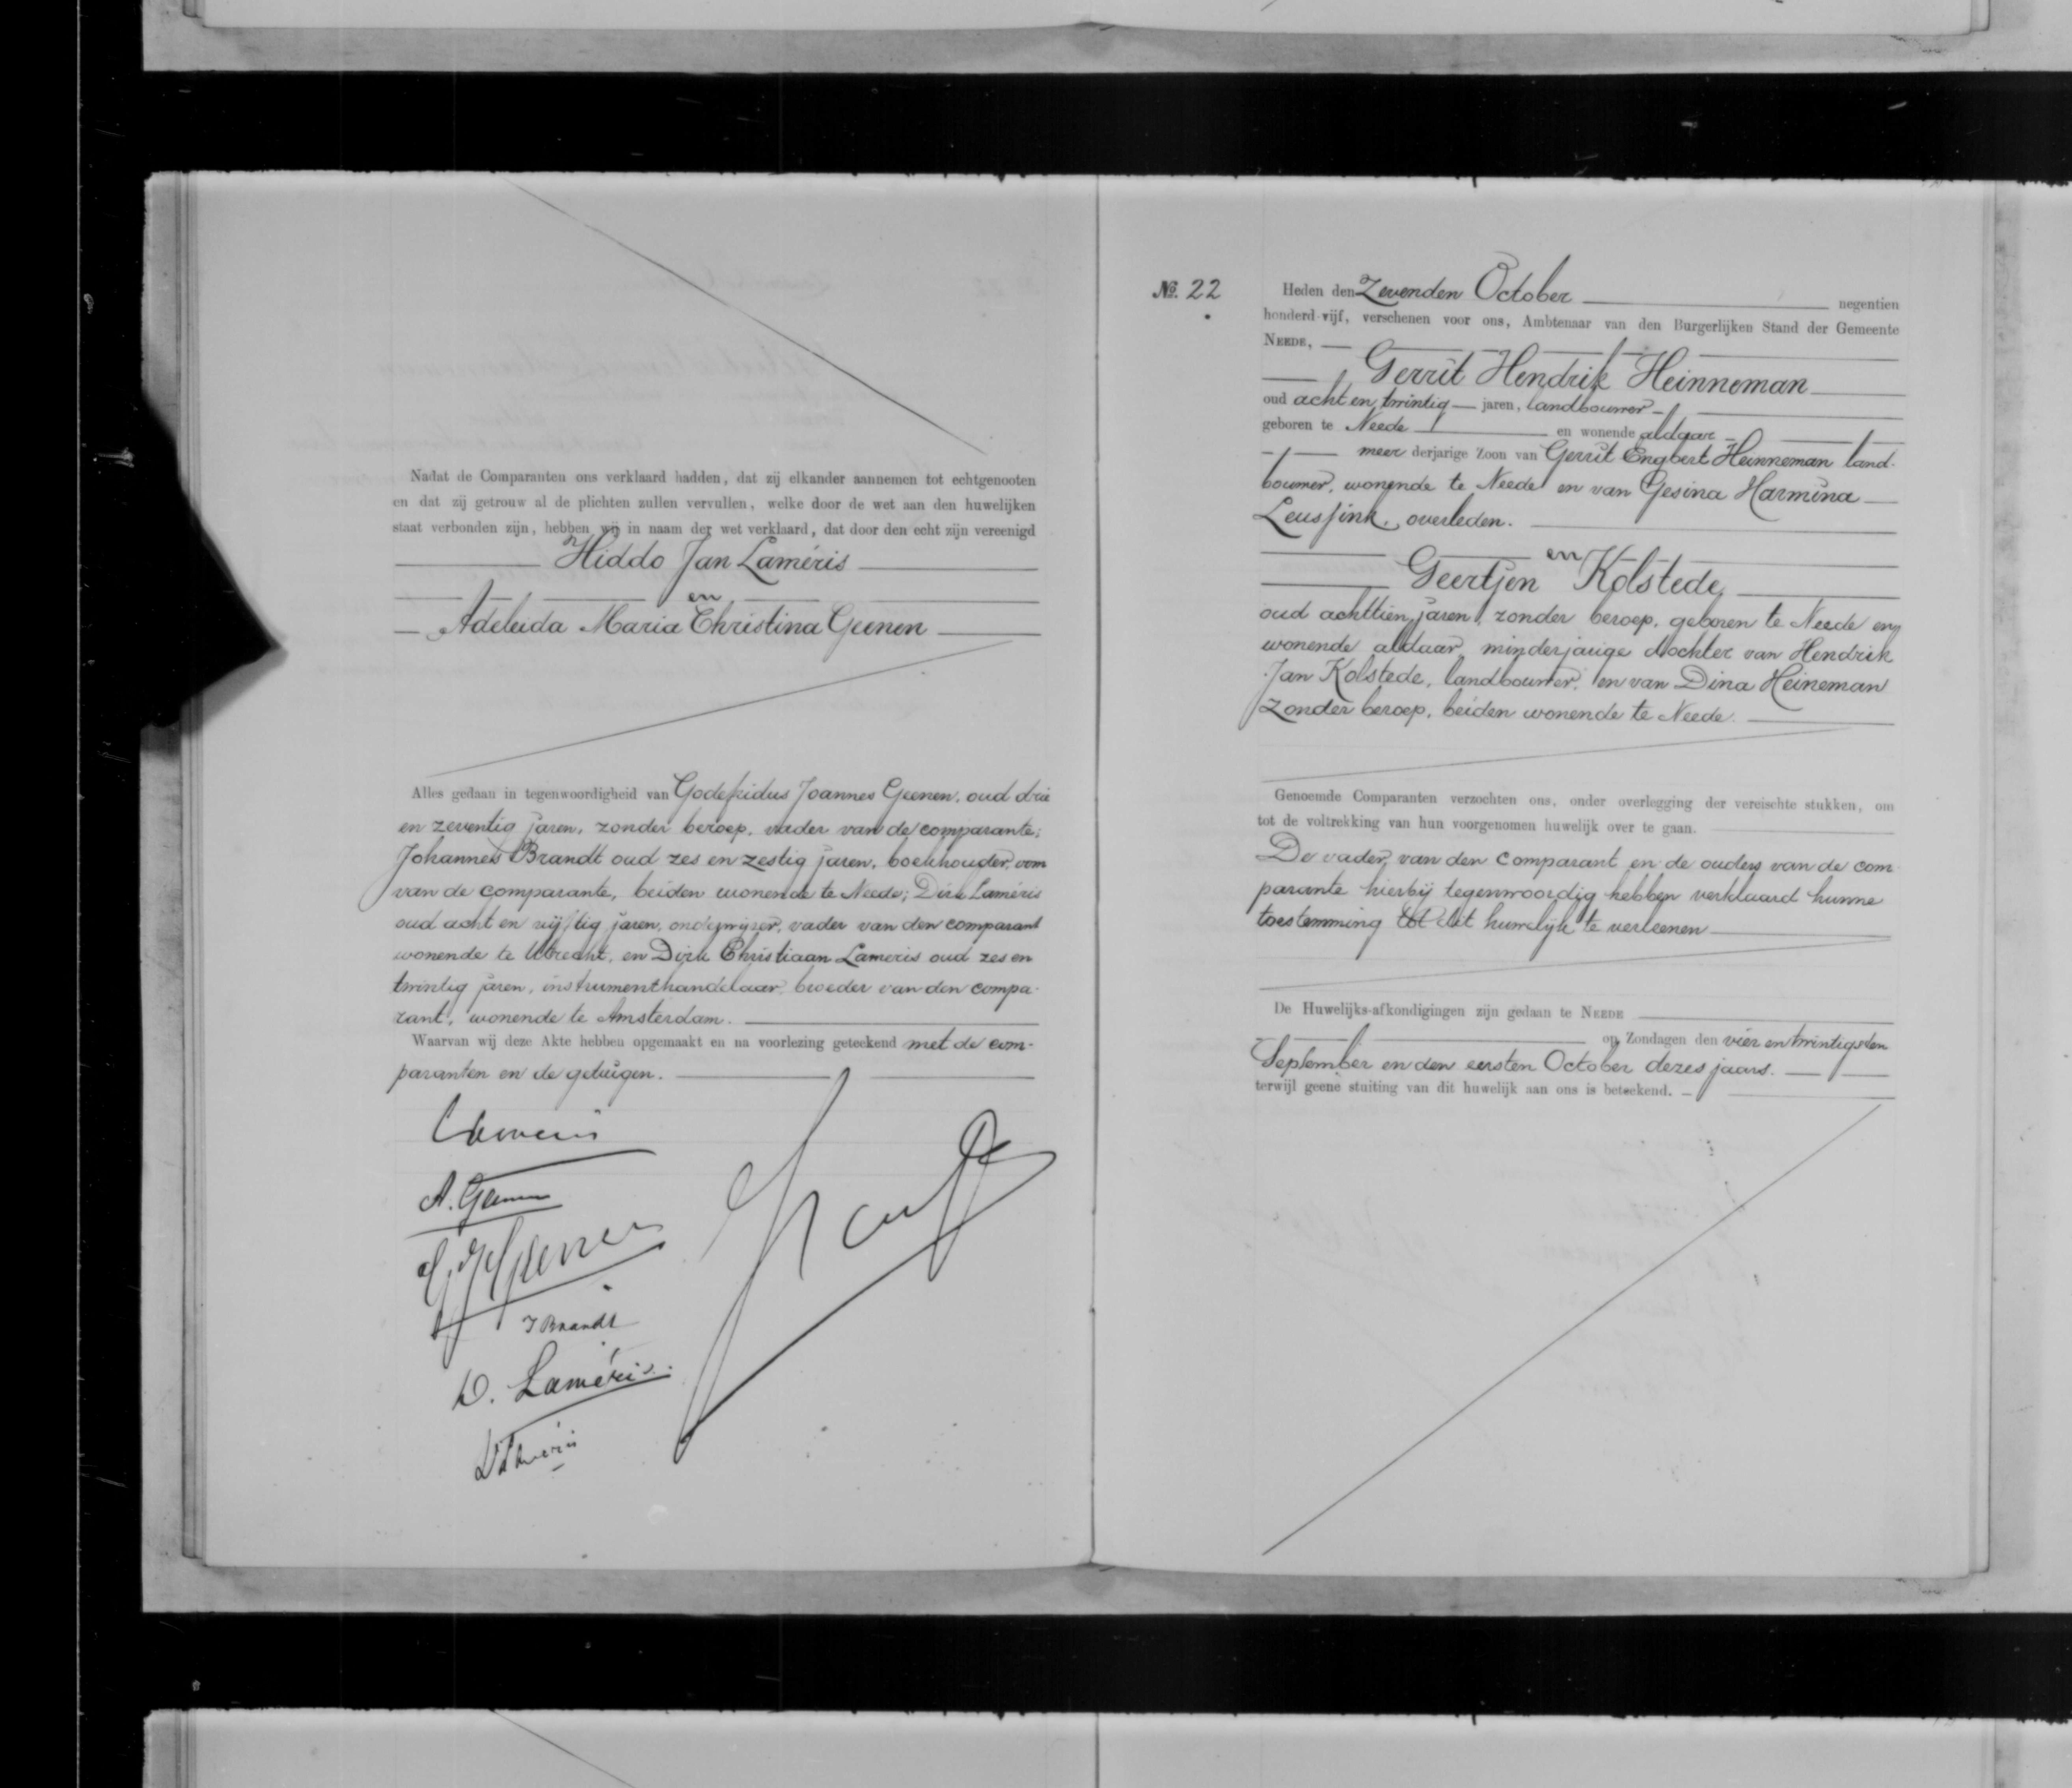 Nadat de Comparanten ons verklaard hadden, dat zij elkander aannemen tot echtgenooten
en dat zij getrouw al de plichten zullen vervullen, welke door de wet aan den huwelijken
staat verbonden zijn, hebben wij in naam der wet verklaard, dat door den echt zijn vereenigd
Hiddo Jan Laméris
en
Adeleida Maria Christina Geenen
Alles gedaan in tegenwoordigheid van Godefridus Joannes Geenen, oud drie
en zeventig jaren, zonder beroep, vader van de comparante;
Johannes Brandt oud zes en zestig jaren, boekhouder, oom
van de comparante, beiden wonende te Neede; Dirk Laméris
oud acht en vijftig jaren, onderwijzer, vader van den comparant
wonende te Utrecht, en Dirk Christiaan Lameris oud zes en
twintig jaren, instrumenthandelaar, broeder van den compa-
rant, wonende te Amsterdam.
Waarvan wij deze Akte hebben opgemaakt en na voorlezing geteekend met de com-
paranten en de getuigen.
Lameris
A. Geenen
G. J. Geenen
J Brandt
D. Laméris.
No. 22
Heden den Zevenden October negentien
honderd vijf, verschenen voor ons, Ambtenaar van den Burgerlijken Stand der Gemeente
NEEDE,
Gerrit Hendrik Heinneman
oud acht en twintig jaren, landbouwer
geboren te Neede en wonende aldaar
meer derjarige Zoon van Gerrit Engbert Heinneman land-
bouwer, wonende te Neede en van Gesina Harmina
Leussink, overleden.
en
Geertjen Kolstede
oud achttien jaren, zonder beroep, geboren te Neede en
wonende aldaar, minderjarige dochter van Hendrik
Jan Kolstede, landbouwer, en van Dina Heineman
zonder beroep, beiden wonende te Neede.
Genoemde Comparanten verzochten ons, onder overlegging der vereischte stukken, om
tot de voltrekking van hun voorgenomen huwelijk over te gaan.
De vader van den comparant en de ouders van de com-
parante hierbij tegenwoordig hebben verklaard hunne
toestemming tot dit huwelijk te verleenen
De Huwelijks-afkondigingen zijn gedaan te NEEDE
op Zondagen den vier en twintigsten
September en den eersten October dezes jaars.
terwijl geene stuiting van dit huwelijk aan ons is beteekend.